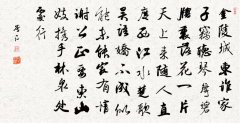 金陵城東誰家
子竊聽琴聲碧
窗裏落花一片
天上來隨人直
度西江水楚歌
吳語嬌不成似
能未能最有情
謝公正要東山
妓攜手林泉處
處行